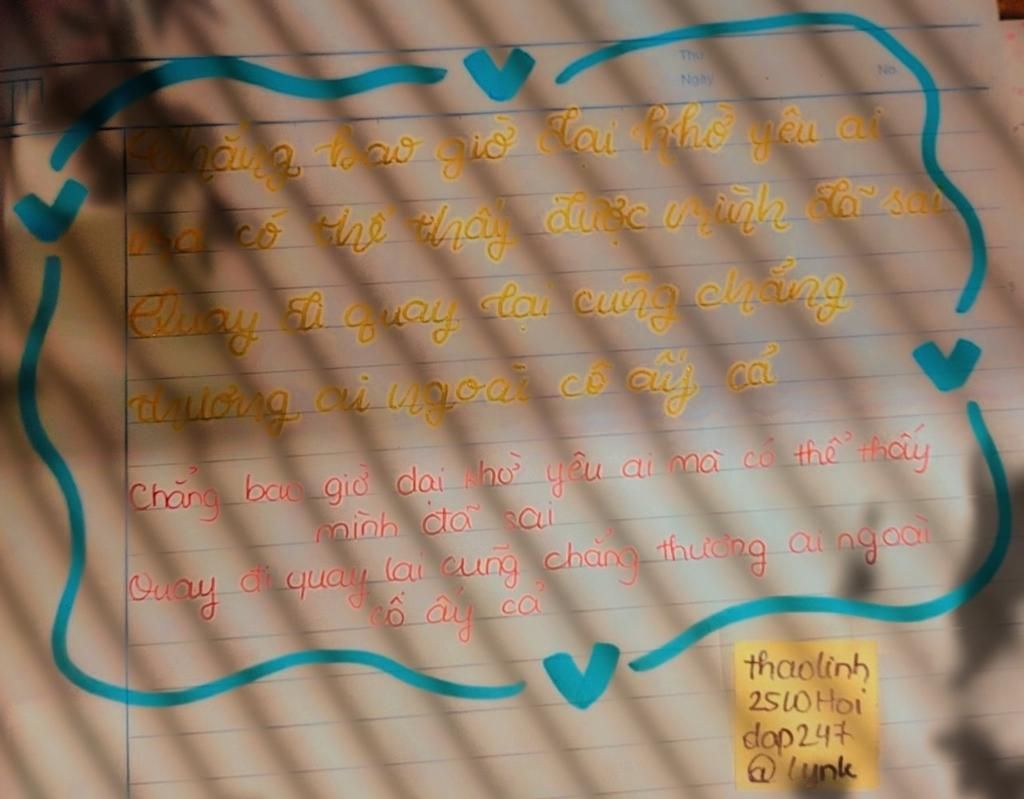 Thứ
No.
Ngày
Chẳng bao giờ dại khờ yêu ai
mà có thể thấy được mình đã sai
Quay đi quay lại cũng chẳng
thương ai ngoài cô ấy cả
Chẳng bao giờ dại khờ yêu ai mà có thể thấy
mình đã sai
Quay đi quay lại cũng chẳng thương ai ngoài
cô ấy cả
thaolinh
2510Hoi
dap247
@lynk